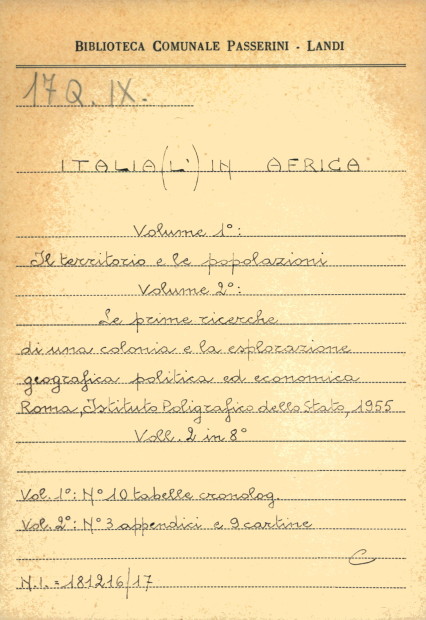 BIBLIOTECA COMUNALE PASSERINI - LANDI
17 Q. IX.
ITALIA (L') IN AFRICA
Volume 1°:
Il territorio e le popolazioni
Volume 2°:
Le prime ricerche
di una colonia e la esplorazione
geografica politica ed economica
Roma, Istituto Poligrafico dello Stato, 1955
Voll. 2 in 8°
Vol. 1°: N° 10 tabelle cronolog.
Vol. 2°: N° 3 appendici e 9 cartine
C
N.I. = 181216/17